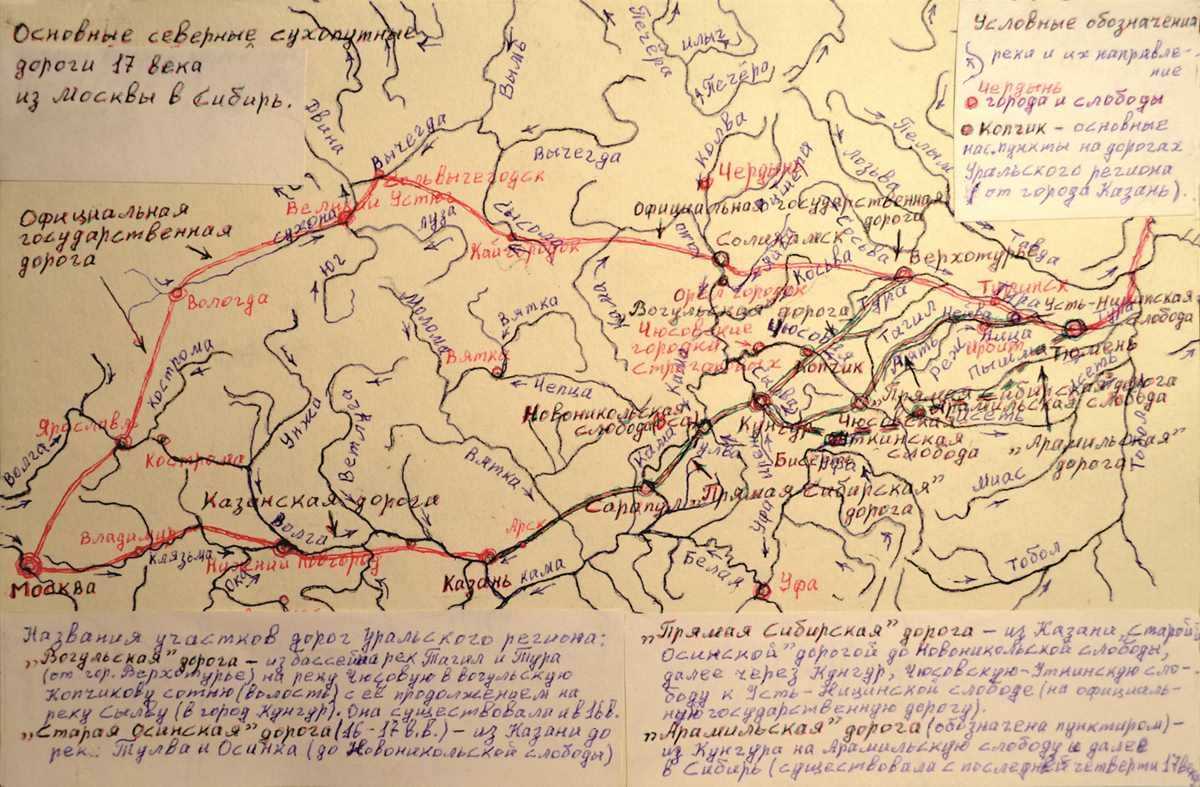 Основные северные сухопутные
дороги 17 века
из Москвы в Сибирь.
Условные обозначения
реки и их направле-
ние
Чердынь
города и слободы
Копчик - основные
нас.пункты на дорогах
Уральского региона
(от города Казань).
Печёра
Илыч
Печёра
Вымь
Двина
Вычегда
Вычегда
Колва
Чердынь
Вишера
Лозьва
Пелым
Сольвычегодск
Великий Устюг
Сухона
Луза
Юг
Сысола
Кайгородск
Официальная государственная
дорога
Официальная
государственная
дорога
Вологда
Соликамск
Яйва
Косьва
Верхотурье
Тавда
Орёл городок
Вогульская дорога
Тура
Тагил
Туринск
Тура
Усть-Ницинская
слобода
Тура
Кама
Молома
Вятка
Вятка
Чусовские
городки
Строгановых
Чусовая
Копчик
Нейва
Ница
Ирбит
Реж
Пышма
Тюмень
Исеть
Кострома
Унжа
Ветлуга
Чепца
Кама
Новоникольская
слобода
Оса
Кунгур
"Прямая Сибирская" дорога
Чюсовская
Уткинская
слобода
Арамильская слобода
"Арамильская"
дорога
Тобол
Ярославль
Волга
Кострома
Вятка
Кама
Бисерть
Уфа
Уфа
Миас
Казанская дорога
Сарапул
"Прямая Сибирская"
дорога
Владимир
Клязьма
Волга
Нижний Новгород
Ока
Арск
Казань
Кама
Белая
Уфа
Тобол
Москва
Названия участков дорог Уральского региона:
"Вогульская" дорога - из бассейна рек Тагил и Тура
(от гор. Верхотурье) на реку Чюсовую в вогульскую
Копчикову сотню (волость) с её продолжением на
реку Сылву (в город Кунгур). Она существовала и в 16 в.
"Старая Осинская" дорога (16-17 в.в.) - из Казани до
рек: Тулва и Осинка (до Новоникольской слободы)
"Прямая Сибирская" дорога - из Казани, "Старой
Осинской" дорогой до Новоникольской слободы,
далее через Кунгур, Чюсовскую-Уткинскую сло-
боду к Усть-Ницинской слободе (на официаль-
ную государственную дорогу).
"Арамильская" дорога (обозначена пунктиром) -
из Кунгура на Арамильскую слободу и далее
в Сибирь (существовала с последней четверти 17 века)